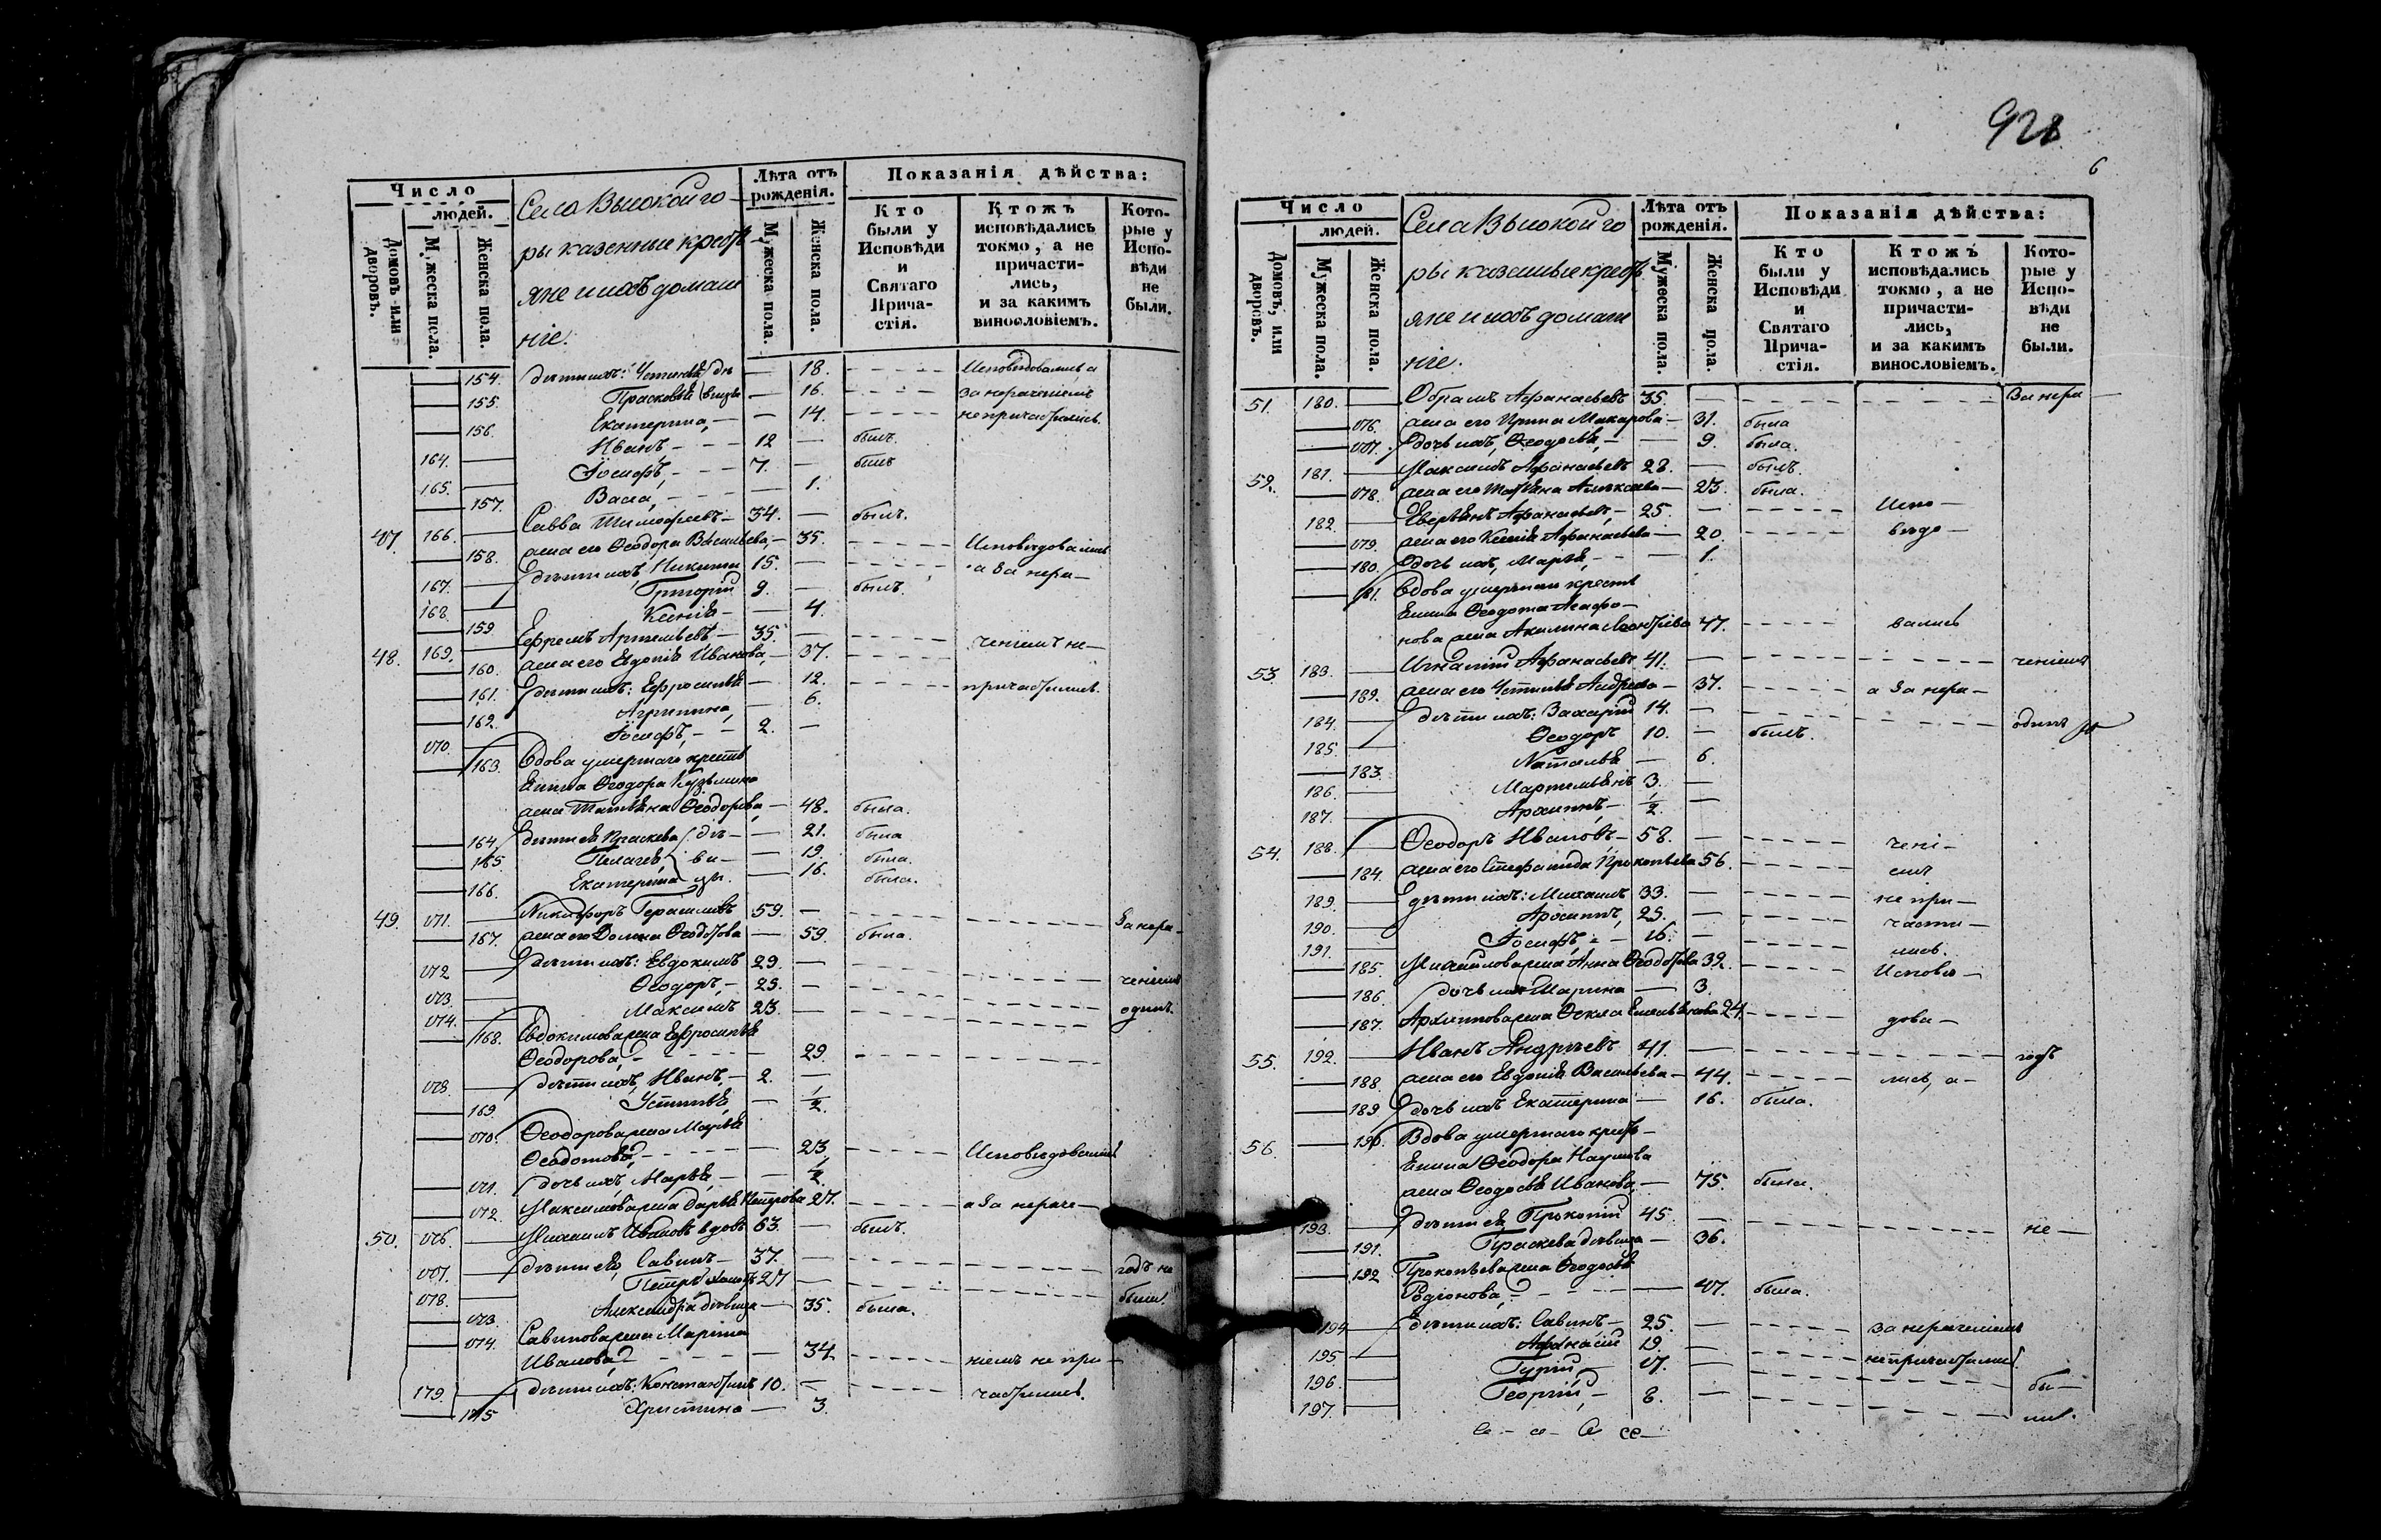 Число
людей.
Домовъ или дворовъ.
Мужеска пола.
Женска пола.
Села Высокой го-
ры казенные кресть
яне и ихъ домаш
ніе.
Лѣта отъ рожденія.
Мужеска пола.
Женска пола.
Показанія дѣйства:
Кто были у Исповѣди и Святаго Прича-стія.
Ктожъ исповѣдались токмо, а не причасти-лись, и за какимъ винословіемъ.
Кото-рые у Испо-вѣди не были.
154. дѣти ихъ: Устинья дѣ — 18. Исповѣдовались а
155. Прасковья вицы — 16. за нерачениемъ
156. Екатерина, — 14. не причастились.
164. Иванъ, — 12 — былъ.
165. Іосифъ, — 7. — былъ
157. Васса, — 1.
47. 166. Савва Тимофеевъ — 34. — былъ.
158. жена его Ѳеодора Васильева, — 35. Исповѣдовались
167. дѣти ихъ, Никита 15. — а за нера —
168. Григорій 9. — былъ.
159. Ксенія — 4.
48. 169. Ефремъ Артемьевъ — 35. —
160. жена его Евдокія Иванова, — 37. ченіемъ не —
161. дѣти ихъ: Ефросинья — 12. причастились.
162. Агрипина, — 6.
170. Іосифъ, — 2. —
163. Вдова умершаго кресть
янина Ѳеодора Кузьмина
жена Татьяна Ѳеодорова, — 48. была.
164. дѣти ея Праскева дѣ — 21. была
165. Пелагея, ви — 19. была.
166. Екатерина цы. — 16. была.
49. 171. Никифоръ Герасимовъ 59. — За нера —
167. жена его Домна Ѳедотова — 59. была.
172. дѣти ихъ: Евдокимъ 29. —
173. Ѳеодоръ, — 25. — ченіемъ
174. Максимъ 23. — одинъ.
168. Евдокимова жена Ефросинья
Ѳеодорова, — 29.
175. дѣти ихъ, Иванъ, — 2. —
169. Устинья, — 1/2.
170. Ѳеодорова жена Марья
Ѳедотова, — 23. Исповѣдовались
171. дочь ихъ Марья, — 1/2.
172. Максимова жена Дарья Петрова 27. а за нераче —
50. 176. Михаилъ Ивановъ вдовъ 63. — былъ.
177. дѣти его, Савинъ — 37. — годъ не
178. Петръ холостъ 27 — были.
173. Александра дѣвица — 35. была.
174. Савинова жена Марина
Иванова — 34 ніемъ не при —
179. дѣти ихъ: Константинъ 10. — частились.
175 Христина — 3.
928
6
Число
людей.
Домовъ, или дворовъ.
Мужеска пола.
Женска пола.
Села Высокой го
ры казенные кресть
яне и ихъ домаш
ніе.
Лѣта отъ рожденія.
Мужеска пола.
Женска пола.
Показанія дѣйства:
Кто были у Исповѣди и Святаго Прича-стія.
Ктожъ исповѣдались токмо, а не причасти-лись, и за какимъ винословіемъ.
Кото-рые у Испо-вѣди не были.
51. 180. Абрамъ Афанасьевъ 35. — За нера —
176. жена его Ирина Макарова — 31. была
177. дочь ихъ, Ѳеодосья, — 9. была.
52. 181. Максимъ Афанасьевъ 28. — былъ.
178. жена его Татьяна Алексеева — 23. была.
182. Аверьянъ Афанасьевъ, — 25. — Испо —
179. жена его Ксенія Афанасьева — 20. вѣдо —
180. дочь ихъ, Марья, — 1.
181. Вдова умершаго кресть
янина Ѳедота Агафо —
нова жена Акилина 47. вались
53. 183. Игнатій Афанасьевъ 41. — ченіемъ
182. жена его Устинья Андреева — 37. а за нера —
184. дѣти ихъ: Захарій 14. — одинъ
185. Ѳеодоръ 10. — былъ.
183. Наталья — 6.
186. Мартемьянъ 3. —
187. Архипъ, — 1/2. —
54. 188. Ѳеодоръ Ивановъ — 58. — чені —
184. жена его Стефанида Прокопьева 56. емъ
189. дѣти ихъ: Михаилъ 33. — не при —
190. Архипъ, 25. — части —
191. Іосифъ, — 16. — лись.
185. Михайлова жена Анна Ѳедотова 32. Исповѣ —
186. дочь ихъ Марина — 3.
187. Архипова жена Ѳекла Емельянова 24. дова —
55. 192. Иванъ Андреевъ 41. — годъ
188. жена его Евдокія Васильева — 44. лись, а —
189. дочь ихъ Екатерина — 16. была.
56. 190. Вдова умершаго кресть —
янина Ѳеодора Наумова
жена Ѳеодосья Иванова, — 75. была.
193. дѣти ея Прокопій 45. — не —
191. Праскева дѣвица — 36.
192 Прокопьева жена Ѳеодосья
Родіонова, — 47. была.
194 дѣти ихъ: Савинъ — 25. — за нерачениемъ
195 Афанасій 19. — не причастились.
196. Гурій — 17. — бы —
197. Георгій, — 8. — ли.